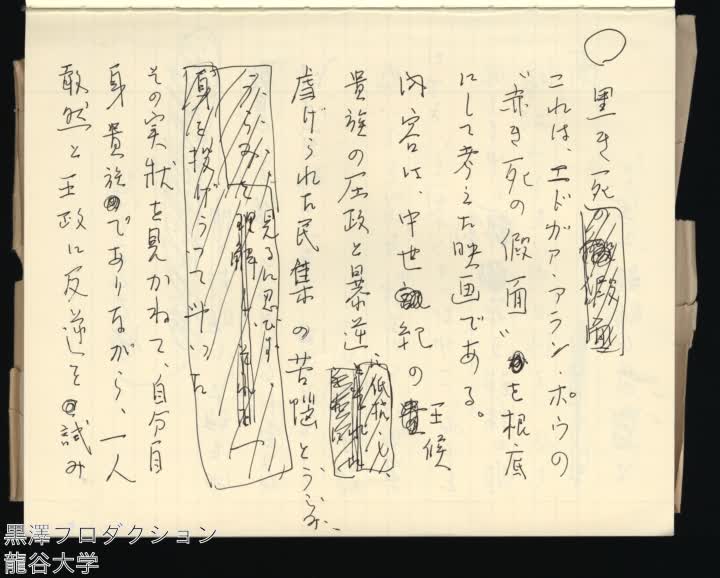 黒き死の仮面
これは、エドガァ・アラン・ポウの
"赤き死の假面"を根底
にして考えた映画である。
内容は、中世紀の王候
貴族の圧政と暴逆、
虐げられた民集の苦悩とうらみ、
見るに忍びず、
理解し、それを
身を投げうって斗った
その実状を見かねて、自分自
身貴族でありながら、一人
敢然と王政に反逆を試み
黒澤プロダクション
龍谷大学